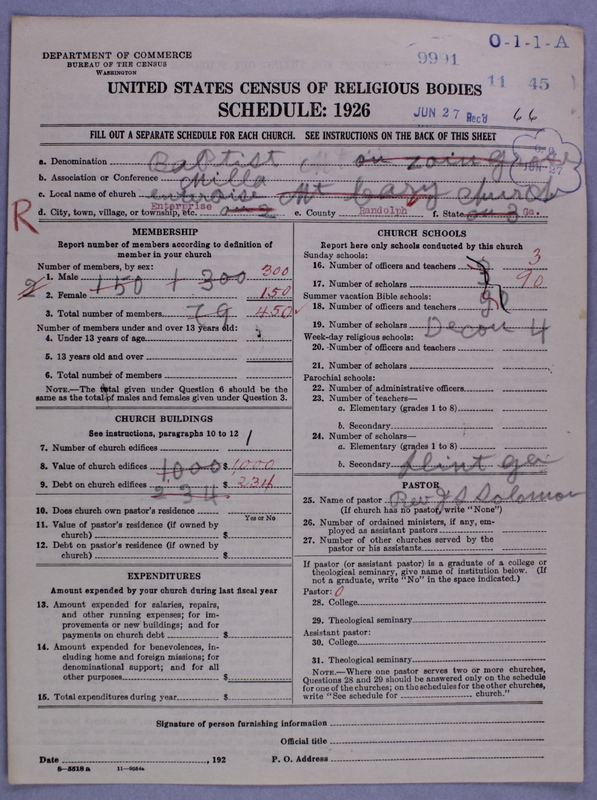 O-1-1-A
DEPARTMENT OF COMMERCE
BUREAU OF THE CENSUS
WASHINGTON
9991
11 45
UNITED STATES CENSUS OF RELIGIOUS BODIES
SCHEDULE: 1926
JUN 27 Rec'd 66
FILL OUT A SEPARATE SCHEDULE FOR EACH CHURCH. SEE INSTRUCTIONS ON THE BACK OF THIS SHEET
JUN 27
a. Denomination Baptist
b. Association or Conference
c. Local name of church enterprise Mt church
d. City, town, village, or township, etc. Enterprise e. County Randolph f. State Ga.
R
MEMBERSHIP
Report number of members according to definition of member in your church
Number of members, by sex:
1. Male 150 + 300 300
2. Female 150
3. Total number of members 79 450
Number of members under and over 13 years old:
4. Under 13 years of age
5. 13 years old and over
6. Total number of members
NOTE.—The total given under Question 6 should be the same as the total of males and females given under Question 3.
CHURCH BUILDINGS
See instructions, paragraphs 10 to 12
7. Number of church edifices 1
8. Value of church edifices 1000 $ 1000
9. Debt on church edifices 234 $ 234
10. Does church own pastor's residence
Yes or No
11. Value of pastor's residence (if owned by church) $
12. Debt on pastor's residence (if owned by church) $
EXPENDITURES
Amount expended by your church during last fiscal year
13. Amount expended for salaries, repairs, and other running expenses; for improvements or new buildings; and for payments on church debt $
14. Amount expended for benevolences, including home and foreign missions; for denominational support; and for all other purposes $
15. Total expenditures during year $
CHURCH SCHOOLS
Report here only schools conducted by this church
Sunday schools:
16. Number of officers and teachers 3
17. Number of scholars 90
Summer vacation Bible schools:
18. Number of officers and teachers
19. Number of scholars
Week-day religious schools:
20. Number of officers and teachers
21. Number of scholars
Parochial schools:
22. Number of administrative officers
23. Number of teachers—
a. Elementary (grades 1 to 8)
b. Secondary
24. Number of scholars—
a. Elementary (grades 1 to 8)
b. Secondary
PASTOR
25. Name of pastor Rev J S Solomon
(If church has no pastor, write "None")
26. Number of ordained ministers, if any, employed as assistant pastors
27. Number of other churches served by the pastor or his assistants
If pastor (or assistant pastor) is a graduate of a college or theological seminary, give name of institution below. (If not a graduate, write "No" in the space indicated.)
Pastor: 0
28. College
29. Theological seminary
Assistant pastor:
30. College
31. Theological seminary
NOTE.—Where one pastor serves two or more churches, Questions 28 and 29 should be answered only on the schedule for one of the churches; on the schedules for the other churches, write "See schedule for church."
Signature of person furnishing information
Official title
Date , 192 P. O. Address
8-5518 a 11-9084a